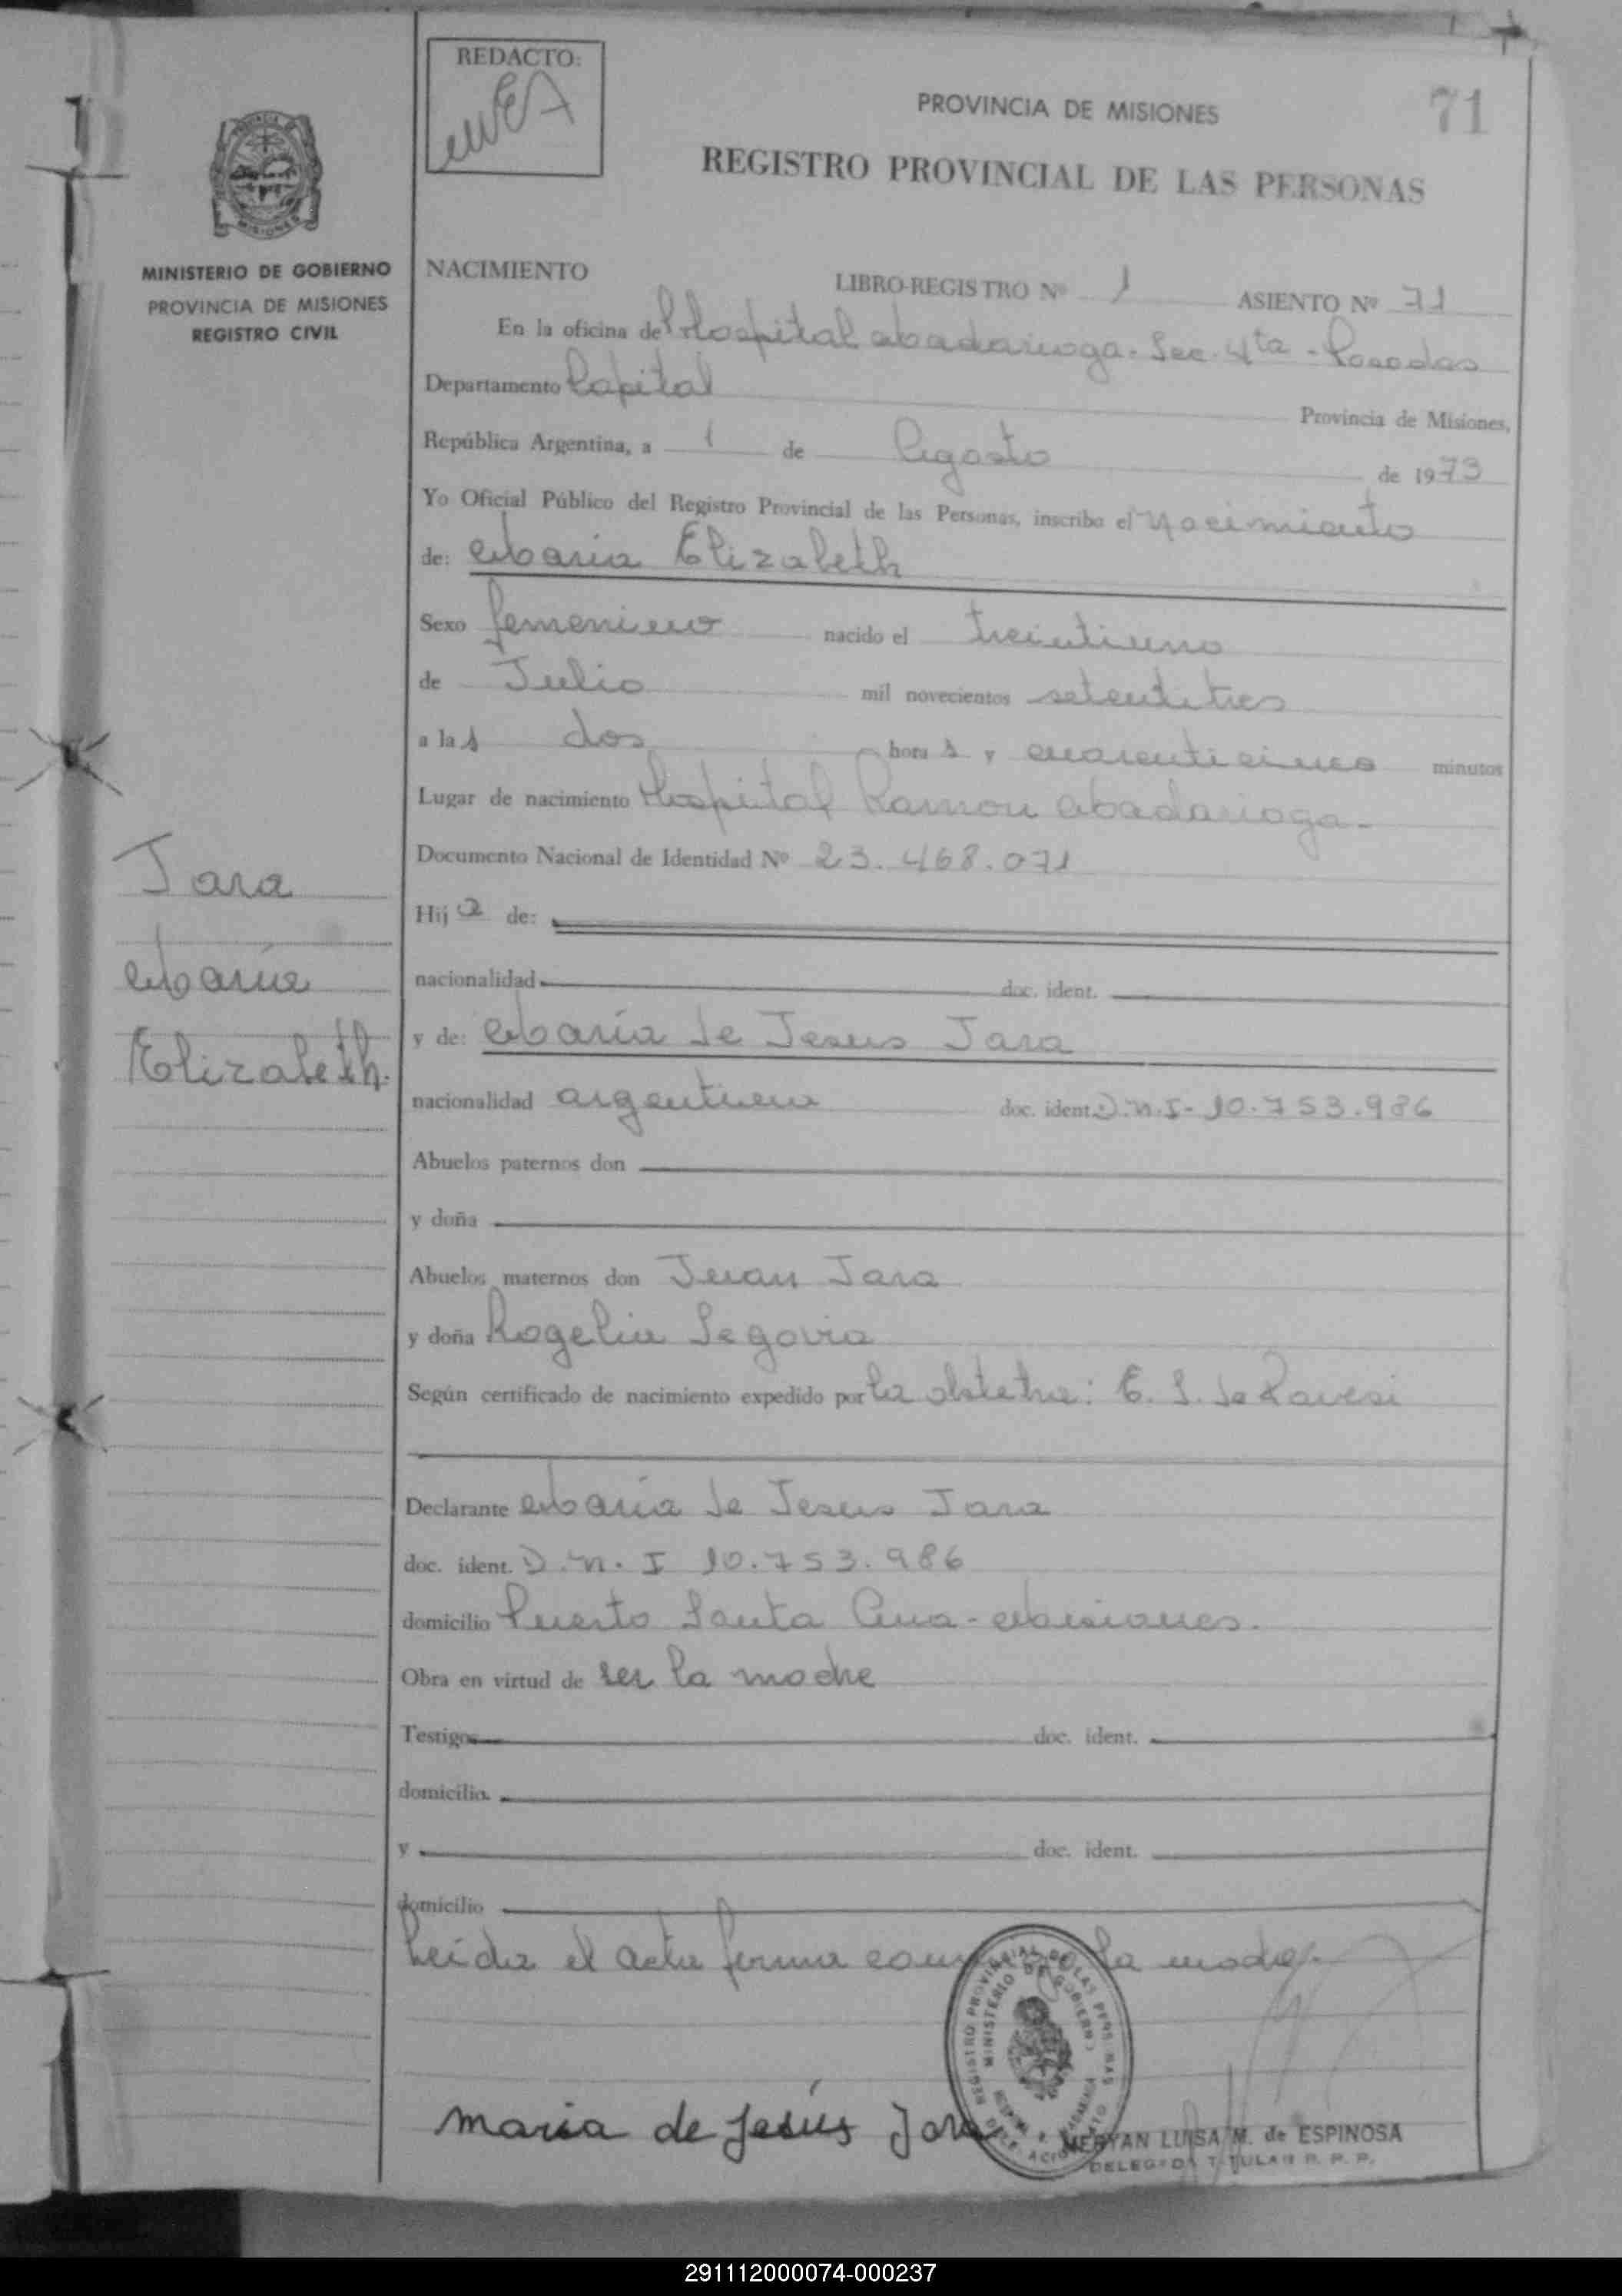 REDACTO:
PROVINCIA DE MISIONES
71
REGISTRO PROVINCIAL DE LAS PERSONAS
MINISTERIO DE GOBIERNO
PROVINCIA DE MISIONES
REGISTRO CIVIL
NACIMIENTO LIBRO-REGISTRO Nº 1 ASIENTO Nº 71
En la oficina del Hospital Madariaga - Sec. 4ta - Posadas
Departamento Capital Provincia de Misiones,
República Argentina, a 1 de Agosto de 1973
Yo Oficial Público del Registro Provincial de las Personas, inscribo el Nacimiento
de: Maria Elizabeth
Sexo femenino nacido el treintiuno
de Julio mil novecientos setentitres
a las dos horas y cuarenticinco minutos
Lugar de nacimiento Hospital Ramon Madariaga -
Documento Nacional de Identidad Nº 23.468.071
Jara
María
Elizabeth.
Hija de:
nacionalidad doc. ident.
y de: María de Jesus Jara
nacionalidad argentina doc. ident. D.N.I- 10.753.986
Abuelos paternos don
y doña
Abuelos maternos don Juan Jara
y doña Rogelia Segovia
Según certificado de nacimiento expedido por la obstetra: E. S. de
Declarante María de Jesus Jara
doc. ident. D.N.I 10.753.986
domicilio Puerto Santa Ana - Misiones.
Obra en virtud de ser la madre
Testigos doc. ident.
domicilio
y doc. ident.
domicilio
Leida el acta firma la madre.-
REGISTRO PROVINCIAL DE LAS PERSONAS
MINISTERIO DE GOBIERNO
maria de Jesús Jara
LUISA M. de ESPINOSA
DELEGADA TITULAR R. P. P.
291112000074-000237